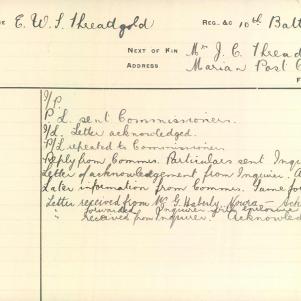 E. W. S. Threadgold
REG. &c 10th Batt
NEXT OF KIN Mr J. C. Thread
ADDRESS Marian Post
I/P
P/L. sent Commissioners.
I/L. Letter acknowledged.
P/L repeated to Commissioner
Reply from Commrs. Particulars sent Inqui
Letter of acknowledgement from Inquirer. A
Later information from Commrs. Same for
Letter received from Mr G. Haberly, Nowra - Sch
" forwarded Inquirer with
" received from Inquirer. Acknowled